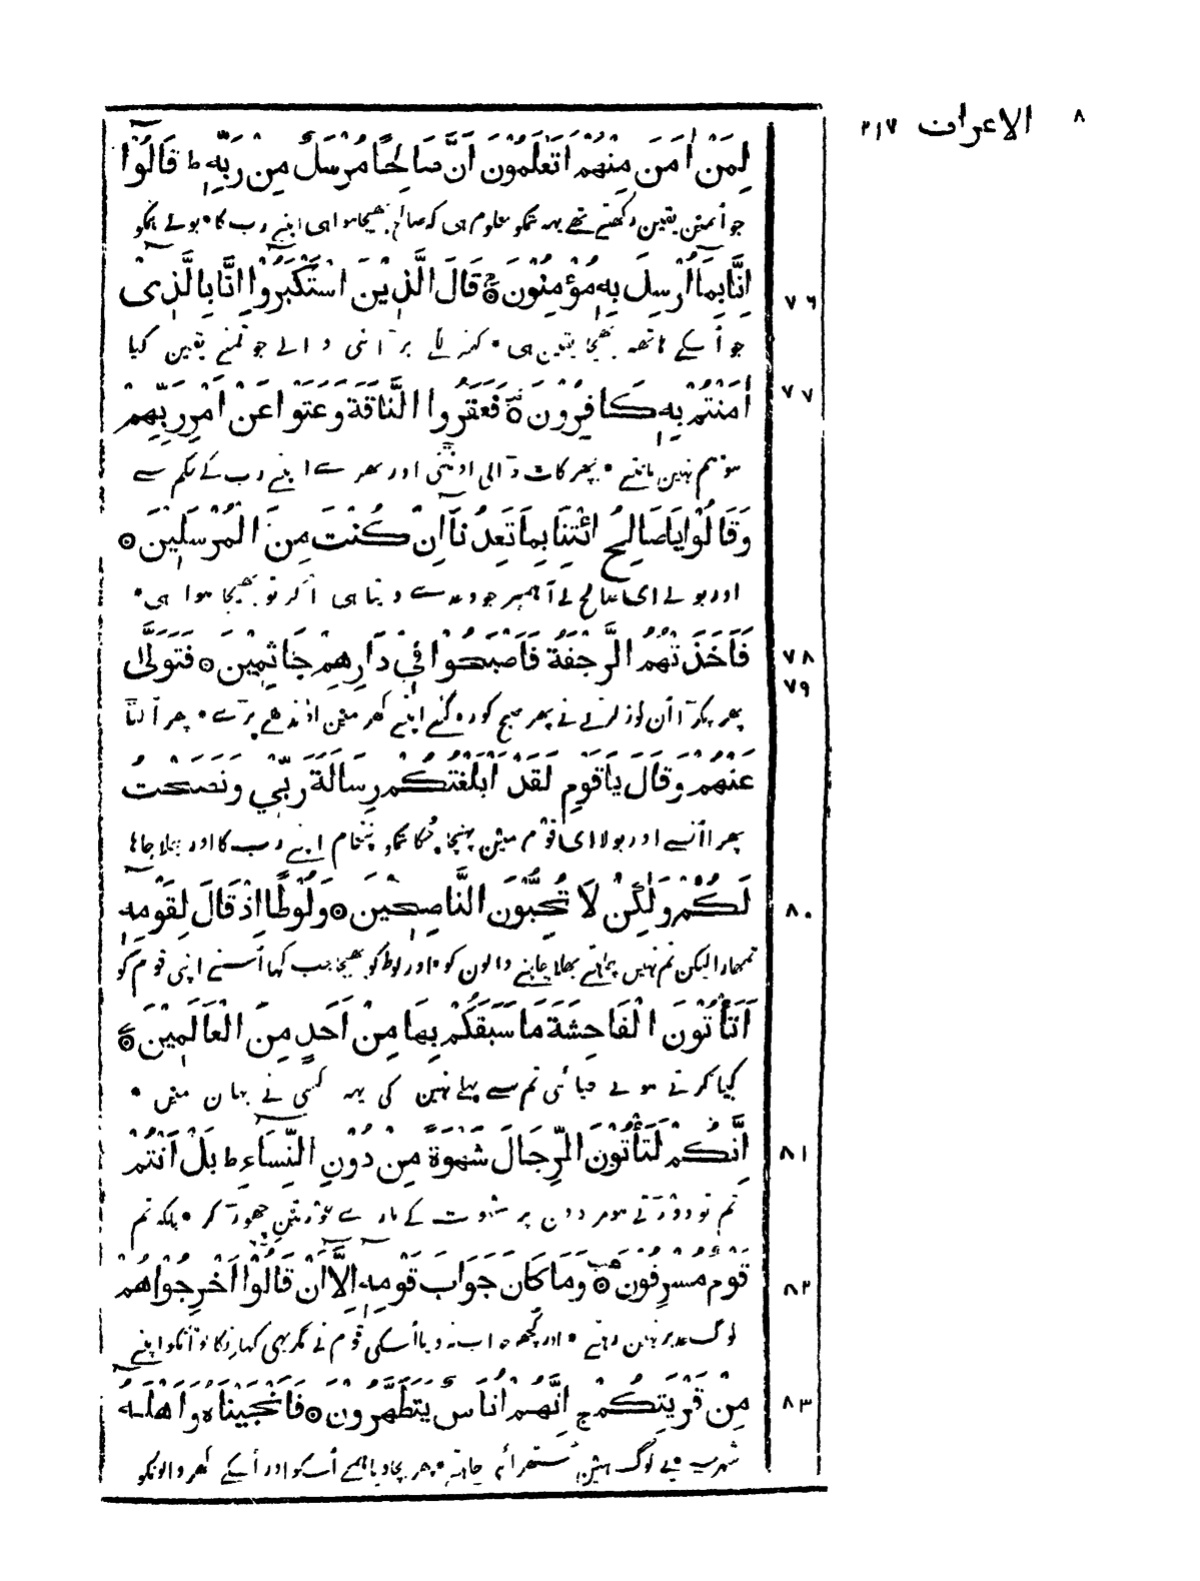 ٨ الاعراف ٢١٧
لِمَنْ اٰمَنَ مِنْهُمْ اَتَعْلَمُوْنَ اَنَّ صَالِحًا مُرْسَلٌ مِنْ رَبِّهٖ ط قَالُوْٓا
جو اُنمین یقین رکھتے تھے یہہ تمکو معلوم ہی کہ صالح بھیجا ہوا ہی اپنے رب کا • بولے ہمکو
اِنَّا بِمَآ اُرْسِلَ بِهٖ مُؤْمِنُوْنَ ۞ قَالَ الَّذِيْنَ اسْتَكْبَرُوْٓا اِنَّا بِالَّذِيْٓ
٧٦
جو اُسکے ہاتھہ بھیجا یقین ہی • کہنے لگے بڑائی والے جو تمنے یقین کیا
اٰمَنْتُمْ بِهٖ كَافِرُوْنَ ۞ فَعَقَرُوا النَّاقَةَ وَعَتَوْا عَنْ اَمْرِ رَبِّهِمْ
٧٧
سو ہم نہین مانتے • پھر کاٹ ڈالی اونٹنی اور پھرے اپنے رب کے حکم سے
وَقَالُوْا يَا صَالِحُ ائْتِنَا بِمَا تَعِدُنَآ اِنْ كُنْتَ مِنَ الْمُرْسَلِيْنَ ۞
اور بولے ای صالح لے آ ہمپر جو وعدے دیتا ہی اگر تو بھیجا ہوا ہی •
فَاَخَذَتْهُمُ الرَّجْفَةُ فَاَصْبَحُوْا فِيْ دَارِهِمْ جَاثِمِيْنَ ۞ فَتَوَلّٰى
٧٨
٧٩
پھر پکڑا اُن کو زلزلے نے پھر صبح کو رہ گئے اپنے گھر مین اوندھے پڑے • پھر اُلٹا
عَنْهُمْ وَقَالَ يَا قَوْمِ لَقَدْ اَبْلَغْتُكُمْ رِسَالَةَ رَبِّيْ وَنَصَحْتُ
پھرا اُنسے اور بولا ای قوم مین پہنچا چکا تمکو پیغام اپنے رب کا اور بھلا چاہا
لَكُمْ وَلٰكِنْ لَا تُحِبُّوْنَ النَّاصِحِيْنَ ۞ وَلُوْطًا اِذْ قَالَ لِقَوْمِهٖٓ
٨٠
تمھارا لیکن تم نہین چاہتے بھلا چاہنے والون کو • اور لوط کو بھیجا جب کہا اُسنے اپنی قوم کو
اَتَاْتُوْنَ الْفَاحِشَةَ مَا سَبَقَكُمْ بِهَا مِنْ اَحَدٍ مِنَ الْعَالَمِيْنَ ۞
کیا کرتے ہو بے حیائی تم سے پہلے نہین کی یہہ کسی نے جہان مین •
اِنَّكُمْ لَتَاْتُوْنَ الرِّجَالَ شَهْوَةً مِنْ دُوْنِ النِّسَآءِ ط بَلْ اَنْتُمْ
٨١
تم تو دوڑتے ہو مردون پر شہوت کے مارے عورتین چھوڑ کر • بلکہ تم
قَوْمٌ مُسْرِفُوْنَ ۞ وَمَا كَانَ جَوَابَ قَوْمِهٖٓ اِلَّآ اَنْ قَالُوْٓا اَخْرِجُوْهُمْ
٨٢
لوگ حد پر نہین رہتے • اور کچھہ جواب نہ دیا اُسکی قوم نے مگر یہی کہا نکالو انکو اپنے
مِنْ قَرْيَتِكُمْ ج اِنَّهُمْ اُنَاسٌ يَتَطَهَّرُوْنَ ۞ فَاَنْجَيْنَاهُ وَاَهْلَهٗٓ
٨٣
شہر سے یے لوگ ہین ستھرائی چاہتے • پھر بچا دیا ہمنے اُسکو اور اُسکے گھر والونکو